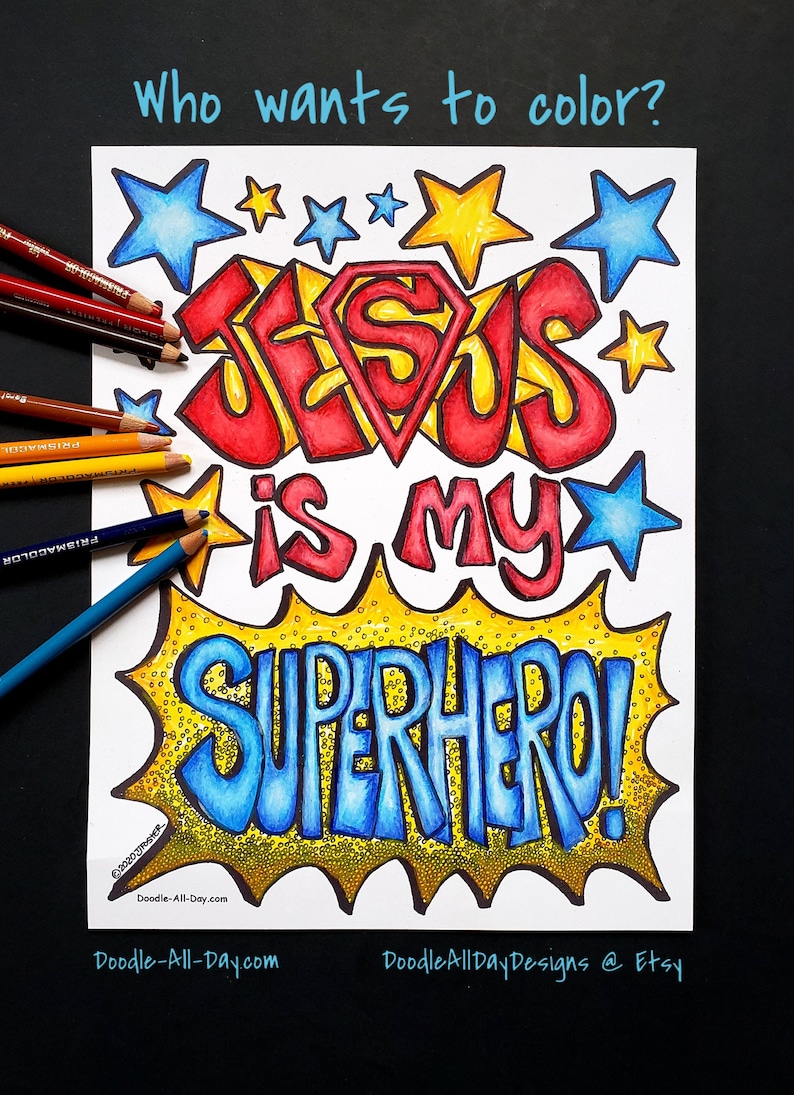 Who wants to color?
JESUS
is my
SUPERHERO!
PRISMACOLOR
PRISMACOLOR
©2020 JFOSTER
Doodle-All-Day.com
Doodle-All-Day.com
DoodleAllDayDesigns @ Etsy